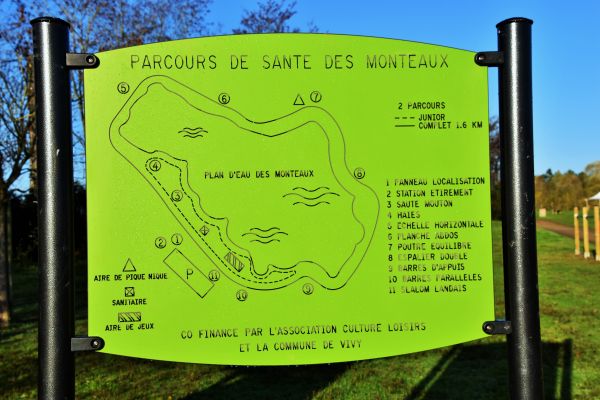 PARCOURS DE SANTE DES MONTEAUX
5
6
7
2 PARCOURS
JUNIOR
COMPLET 1.6 KM
4
PLAN D'EAU DES MONTEAUX
6
3
1 PANNEAU LOCALISATION
2 STATION ETIREMENT
3 SAUTE MOUTON
4 HAIES
5 ECHELLE HORIZONTALE
6 PLANCHE ABDOS
7 POUTRE EQUILIBRE
8 ESPALIER DOUBLE
9 BARRES D'APPUIS
10 BARRES PARALLELES
11 SLALOM LANDAIS
2
1
P
11
10
9
AIRE DE PIQUE NIQUE
SANITAIRE
AIRE DE JEUX
CO FINANCE PAR L'ASSOCIATION CULTURE LOISIRS
ET LA COMMUNE DE VIVY